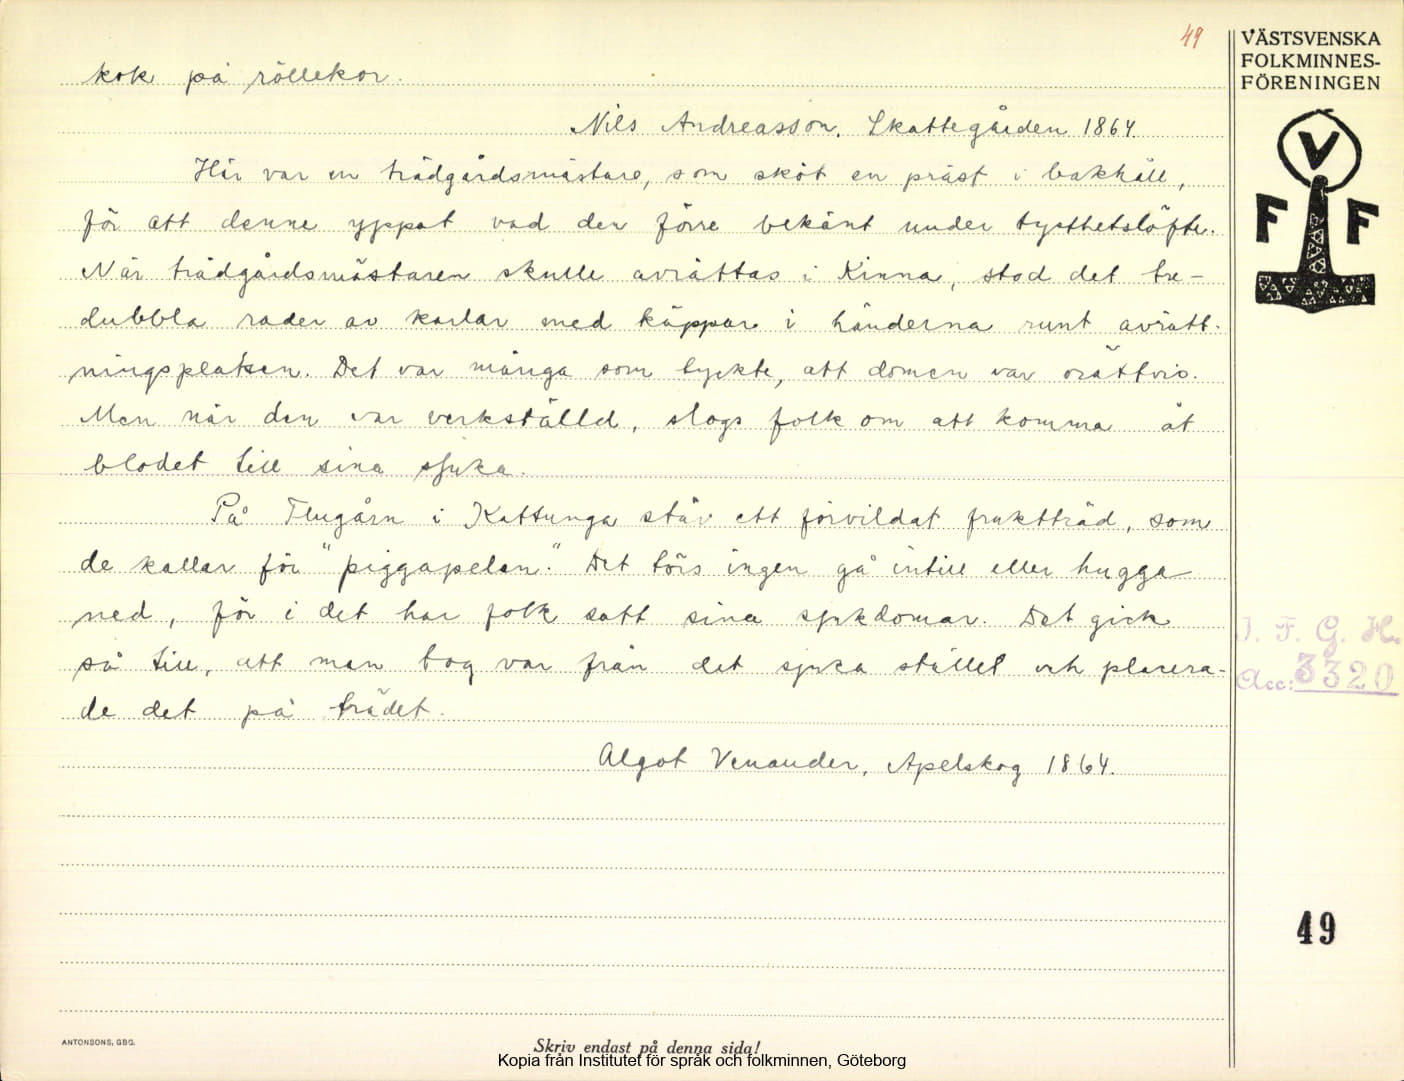 49
kok på röllekor.
Nils Andreasson, Skattegården 1864.
Här var en trädgårdsmästare, som sköt en präst i bakhåll,
för att denne yppat vad den förre bekänt under tysthetslöfte.
När trädgårdsmästaren skulle avrättas i Kinna, stod det tre-
dubbla rader av karlar med käppar i händerna runt avrätt-
ningsplatsen. Det var många som tyckte, att domen var orättvis.
Men när den var verkställd, slogs folk om att komma åt
blodet till sina sjuka.
På i Kattunga står ett förvildat fruktträd, som
de kallar för "piggapelan." Det törs ingen gå intill eller hugga
ned, för i det har folk satt sina sjukdomar. Det gick
så till, att man tog var från det sjuka stället och placera-
de det på trädet.
Algot Venander, Apelskog 1864.
VÄSTSVENSKA
FOLKMINNES-
FÖRENINGEN
V
F F
I. F. G. H.
Acc: 3320
49
ANTONSONS, GBG.
Skriv endast på denna sida!
Kopia från Institutet för språk och folkminnen, Göteborg